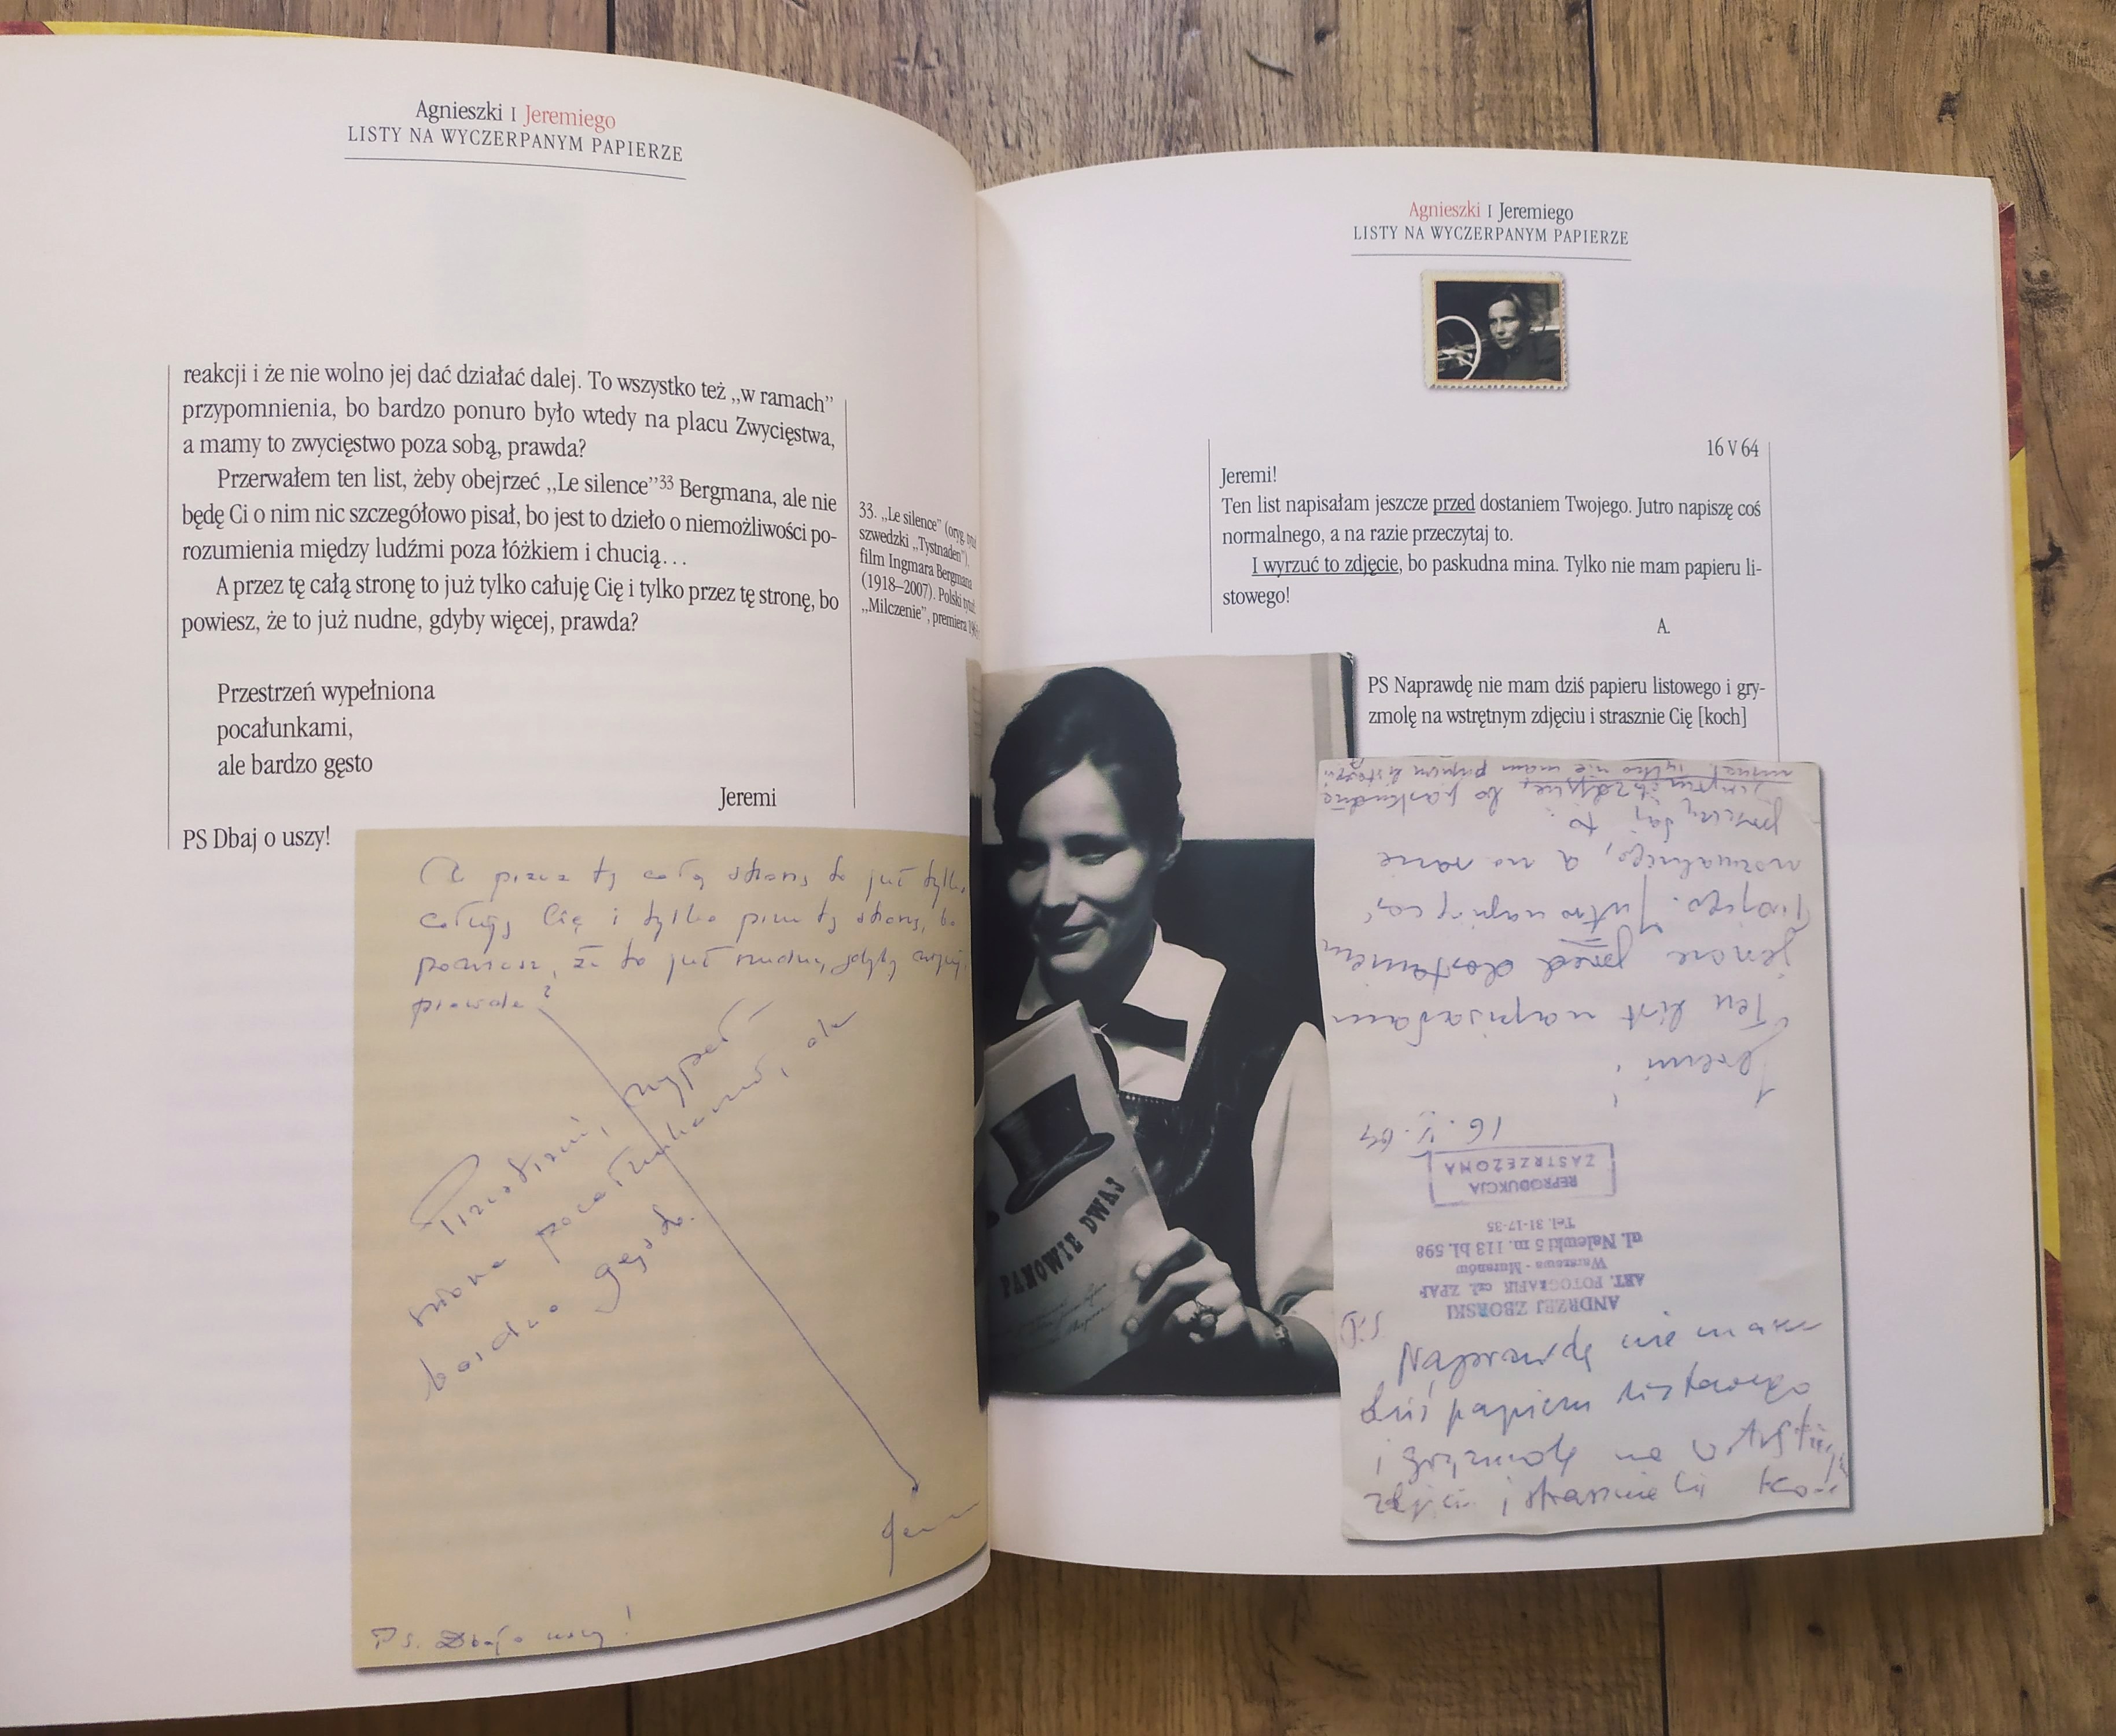 Agnieszki I Jeremiego
LISTY NA WYCZERPANYM PAPIERZE
reakcji i że nie wolno jej dać działać dalej. To wszystko też „w ramach”
przypomnienia, bo bardzo ponuro było wtedy na placu Zwycięstwa,
a mamy to zwycięstwo poza sobą, prawda?
Przerwałem ten list, żeby obejrzeć „Le silence”33 Bergmana, ale nie
będę Ci o nim nic szczegółowo pisał, bo jest to dzieło o niemożliwości po-
rozumienia między ludźmi poza łóżkiem i chucią…
A przez tę całą stronę to już tylko całuję Cię i tylko przez tę stronę, bo
powiesz, że to już nudne, gdyby więcej, prawda?
Przestrzeń wypełniona
pocałunkami,
ale bardzo gęsto
Jeremi
PS Dbaj o uszy!
33. „Le silence” (oryg. tytuł
szwedzki „Tystnaden”),
film Ingmara Bergmana
(1918–2007). Polski tytuł
„Milczenie”, premiera
A przez tę całą stronę to już tylko
całuję Cię i tylko przez tę stronę, bo
powiesz, że to już nudne, gdyby więcej,
prawda?
Przestrzeń, wypeł-
niona pocałunkami, ale
bardzo gęsto.
Jeremi
PS. Dbaj o uszy!
Agnieszki I Jeremiego
LISTY NA WYCZERPANYM PAPIERZE
16 V 64
Jeremi!
Ten list napisałam jeszcze przed dostaniem Twojego. Jutro napiszę coś
normalnego, a na razie przeczytaj to.
I wyrzuć to zdjęcie, bo paskudna mina. Tylko nie mam papieru li-
stowego!
A.
PS Naprawdę nie mam dziś papieru listowego i gry-
zmolę na wstrętnym zdjęciu i strasznie Cię [koch]
PANOWIE DWAJ
16. V. 64
Jeremi!
Ten list napisałam
jeszcze przed dostaniem
Twojego. Jutro napiszę coś
normalnego, a na razie
przeczytaj to
I wyrzuć to zdjęcie, bo paskudna
mina! Tylko nie mam papieru listowego
REPRODUKCJA
ZASTRZEŻONA
ANDRZEJ ZBORSKI
ART. FOTOGRAFIK czł. ZPAF
Warszawa - Muranów
ul. Nalewki 5 m. 113 bl. 598
Tel. 31-17-35
Naprawdę nie mam
dziś papieru listowego
i gryzmolę na wstrętnym
zdjęciu i strasznie Cię koch